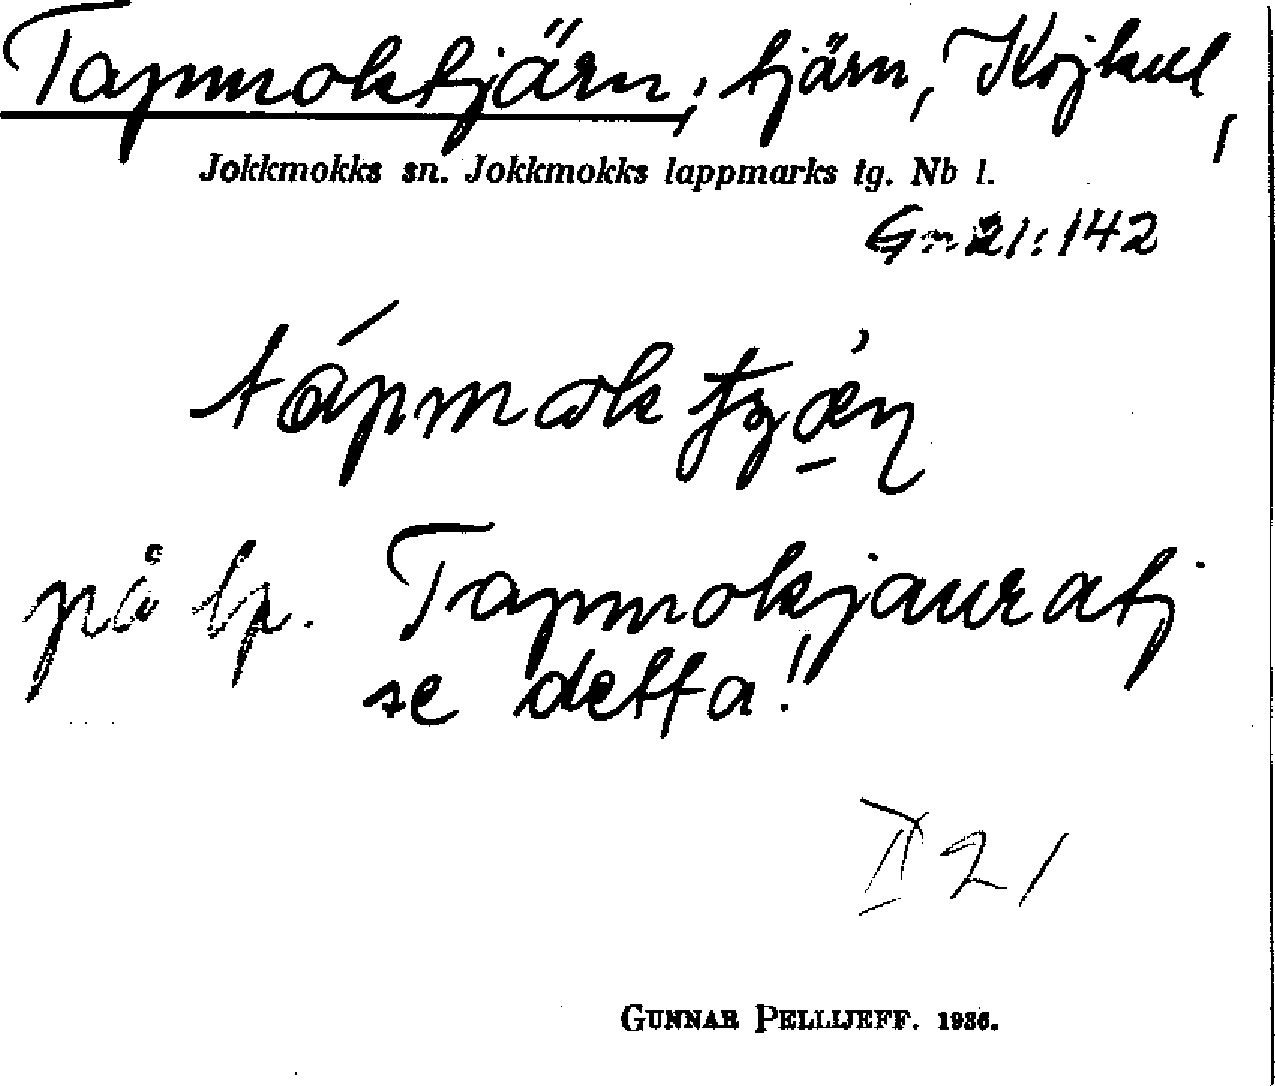 Tapmoktjärn; tjärn, Kojkul,
Jokkmokks sn. Jokkmokks lappmarks tg. Nb l.
Gn 21:142
tápmok
på lp. Tapmokjauratj
se detta!
II 21
GUNNAR PELLIJEFF. 1936.